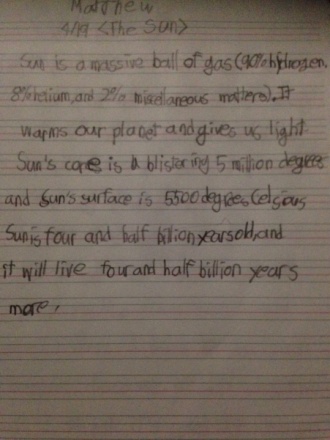 Matthew
4/19 <The Sun>
Sun is a massive ball of gas(90% hydrogen,
8% helium, and 2% miscellaneous matters). It
warms our planet and gives us light
Sun's core is a blistering 5 million degrees
and Sun's surface is 5500 degrees Celsious
Sun is four and half billion years old, and
it will live four and half billion years
more.